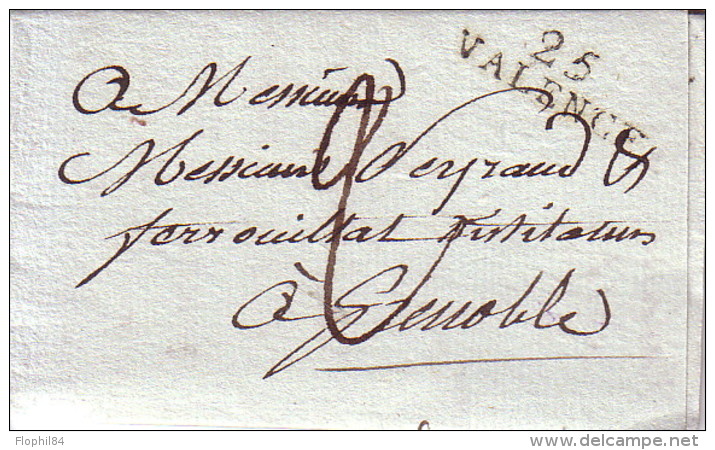 25
VALENCE
à Messieurs
Messieurs Peyraud &
ferrouillat instituteurs
à Grenoble
Flophil84
delcampe.net